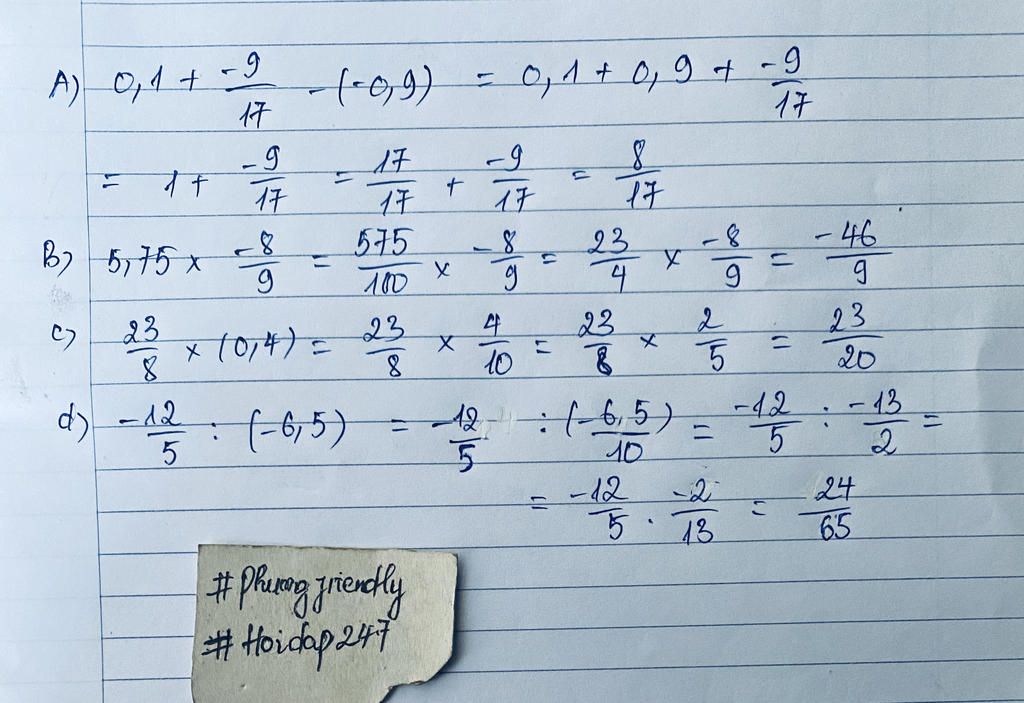 A) 0,1 + -9/17 - (-0,9) = 0,1 + 0,9 + -9/17
= 1 + -9/17 = 17/17 + -9/17 = 8/17
B) 5,75 x -8/9 = 575/100 x -8/9 = 23/4 x -8/9 = -46/9
c) 23/8 x (0,4) = 23/8 x 4/10 = 23/8 x 2/5 = 23/20
d) -12/5 : (-6,5) = -12/5 : (-6,5/10) = -12/5 : -13/2 =
= -12/5 . -2/13 = 24/65
# Phuong friendly
# Hoidap247